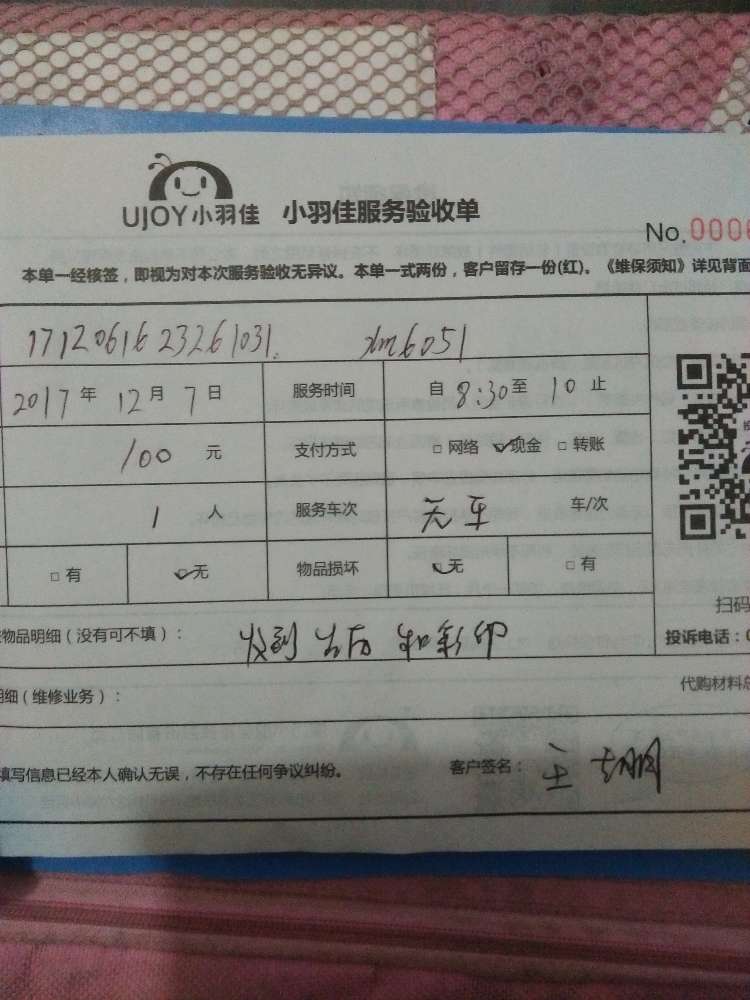 UJOY小羽佳 小羽佳服务验收单
No.0006
本单一经核签，即视为对本次服务验收无异议。本单一式两份，客户留存一份(红)。《维保须知》详见背面
1712061623261031. xm6051
2017年12月7日 服务时间 自8:30至10止
100元 支付方式 □网络 ☑现金 □转账
1人 服务车次 无车 车/次
□有 ☑无 物品损坏 ☑无 □有
扫码
物品明细（没有可不填）： 和彩印 投诉电话：
明细（维修业务）： 代购材料总
填写信息已经本人确认无误，不存在任何争议纠纷。 客户签名： 王